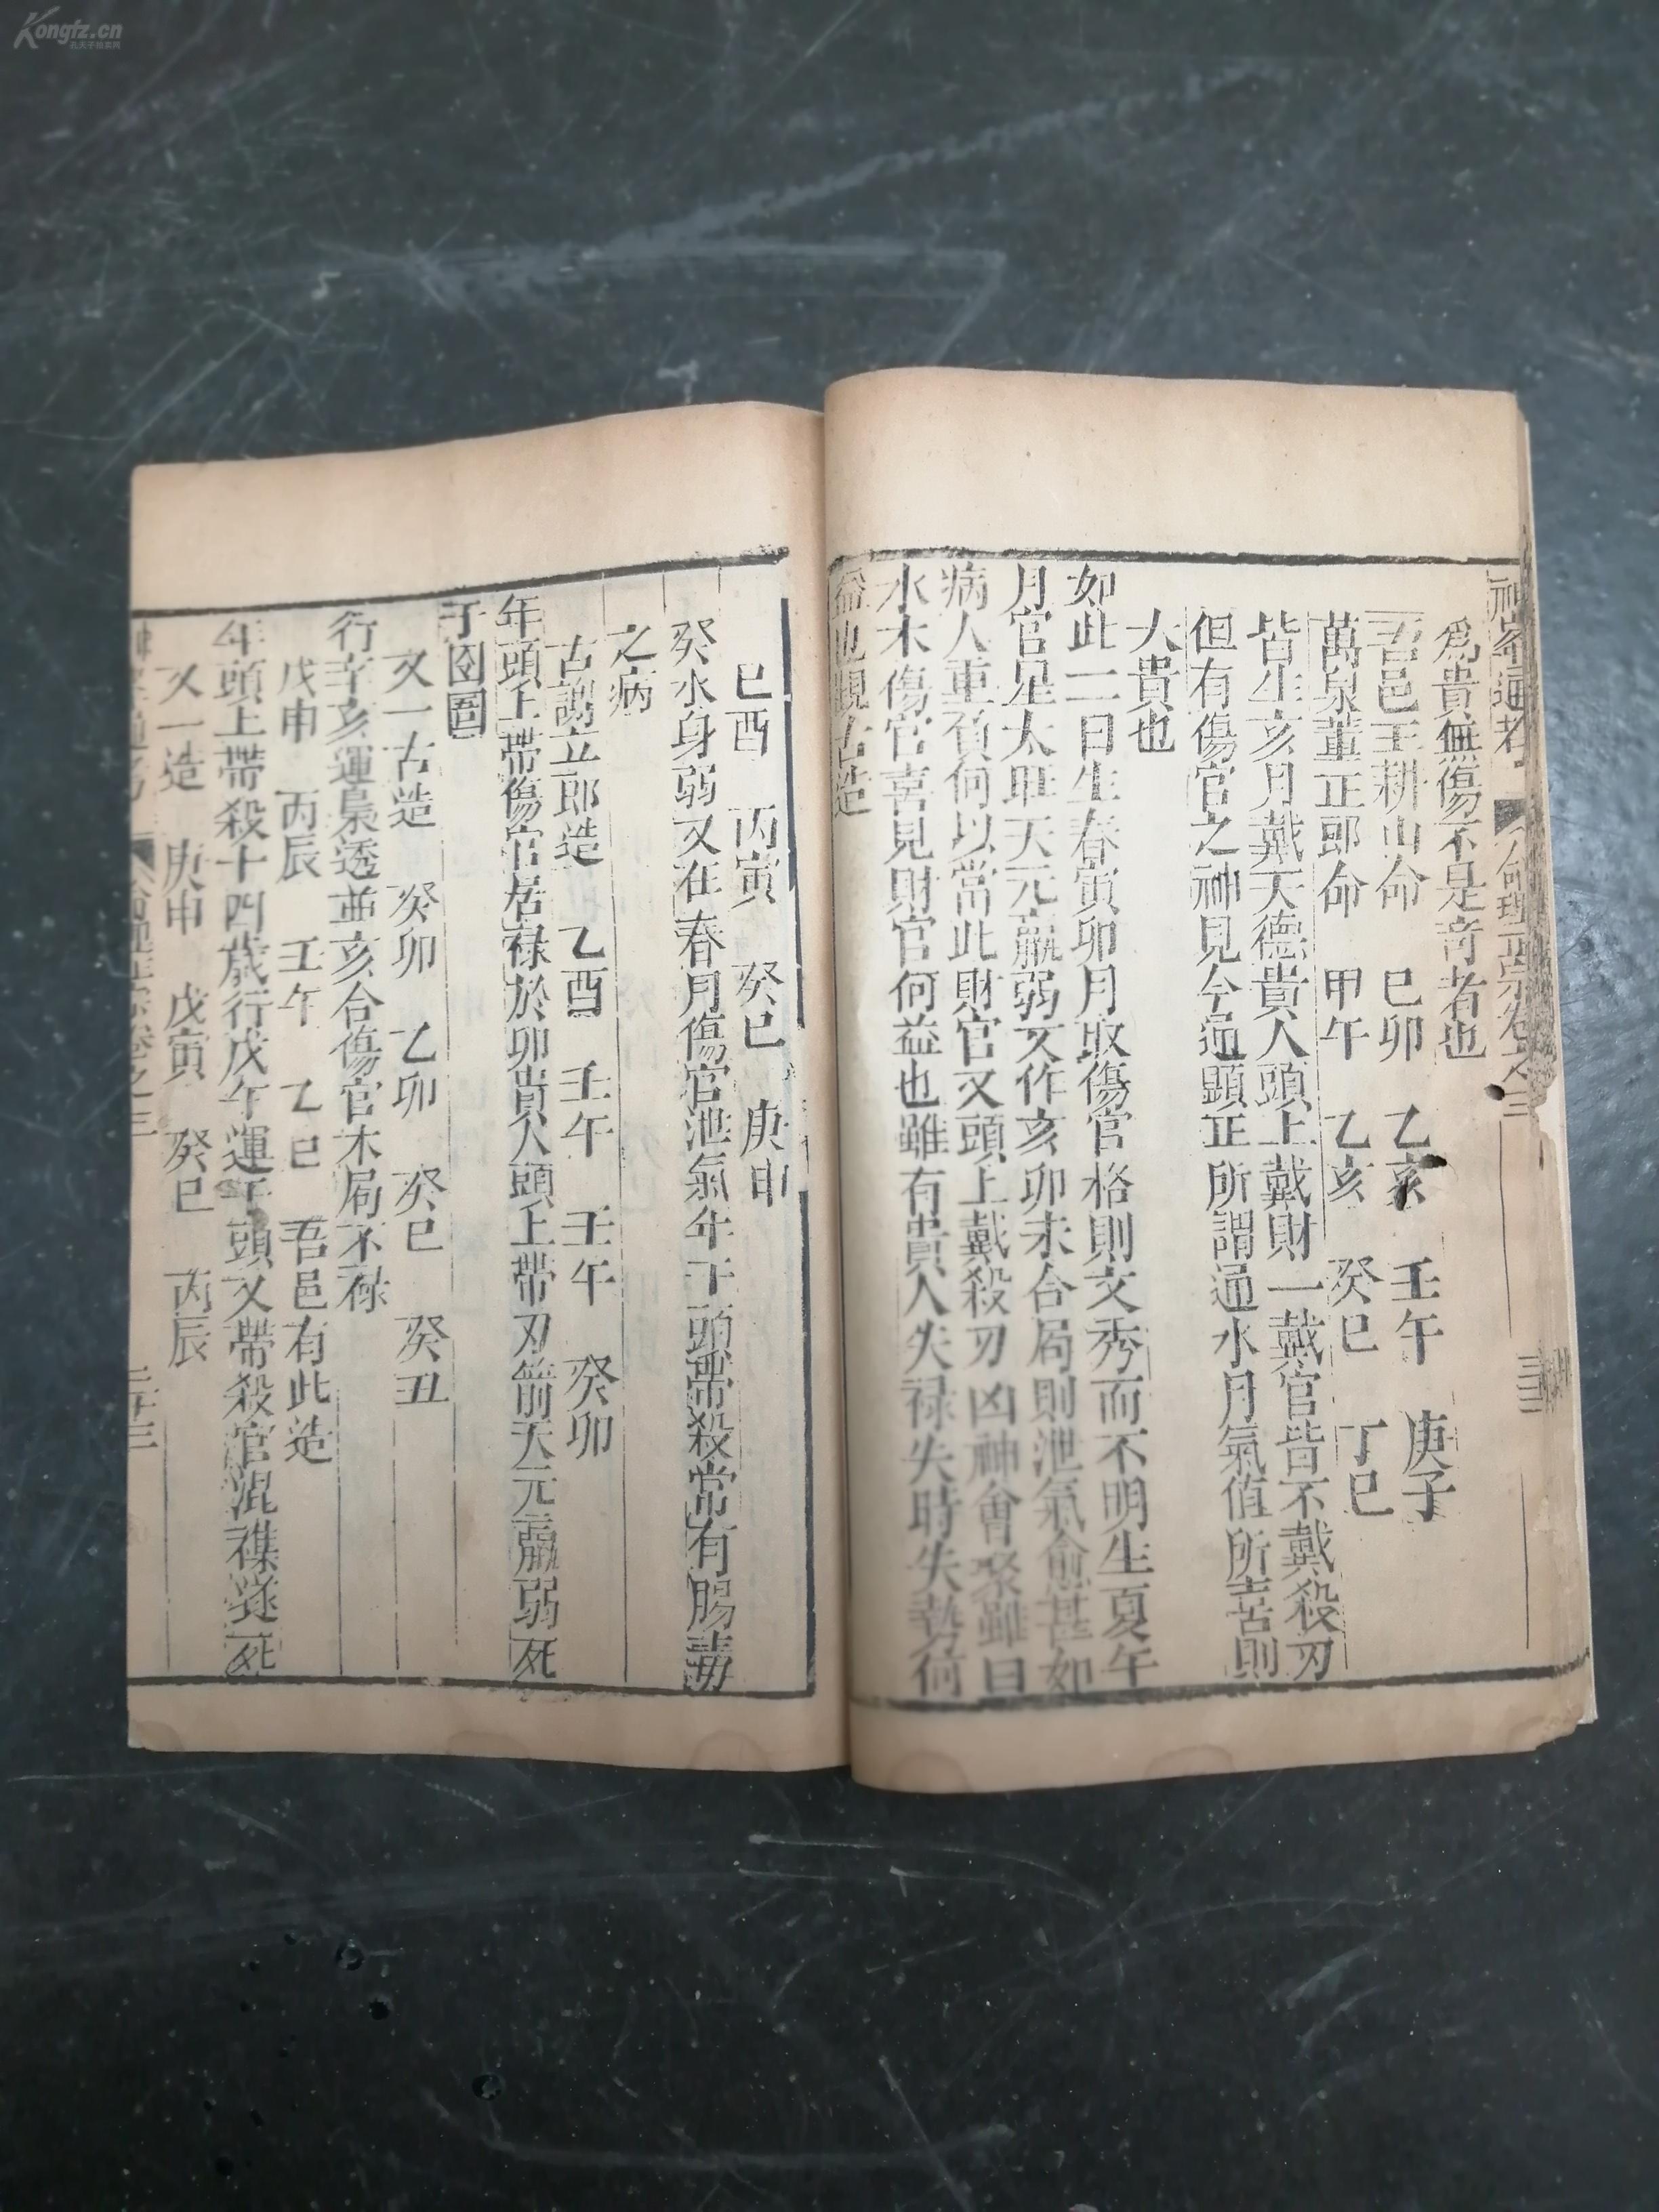 Kongfz.cn
神峯通考 命理正宗卷之三
爲貴無傷不是奇者也
吾邑王耕山命 己卯 乙亥 壬午 庚子
萬泉董正郎命 甲午 乙亥 癸巳 丁巳
皆生亥月戴天德貴人頭上戴財一戴官皆不戴殺刃
但有傷官之神見今通顯正所謂通水月氣值所喜則
大貴也
如此二日生春寅卯月取傷官格則文秀而不明生夏午
月官星太旺天元羸弱又作亥卯未合局則泄氣愈甚如
病人重負何以當此財官又頭上戴殺刃凶神會聚雖曰
水木傷官喜見財官何益也雖有貴人失祿失時失勢何
益也觀古造
己酉 丙寅 癸巳 庚申
癸水身弱又在春月傷官泄氣年干頭帶殺常有腸毒
之病
古謝立郎造 乙酉 壬午 壬午 癸卯
年頭上帶傷官居祿於卯貴人頭上帶刃箭天元羸弱死
于囹圄
又一古造 癸卯 乙卯 癸巳 癸丑
行辛亥運梟透並亥合傷官木局不祿
戊申 丙辰 壬午 乙巳 吾邑有此造
年頭上帶殺十四歲行戊午運年頭又帶殺官混襍遂死
又一造 庚申 戊寅 癸巳 丙辰